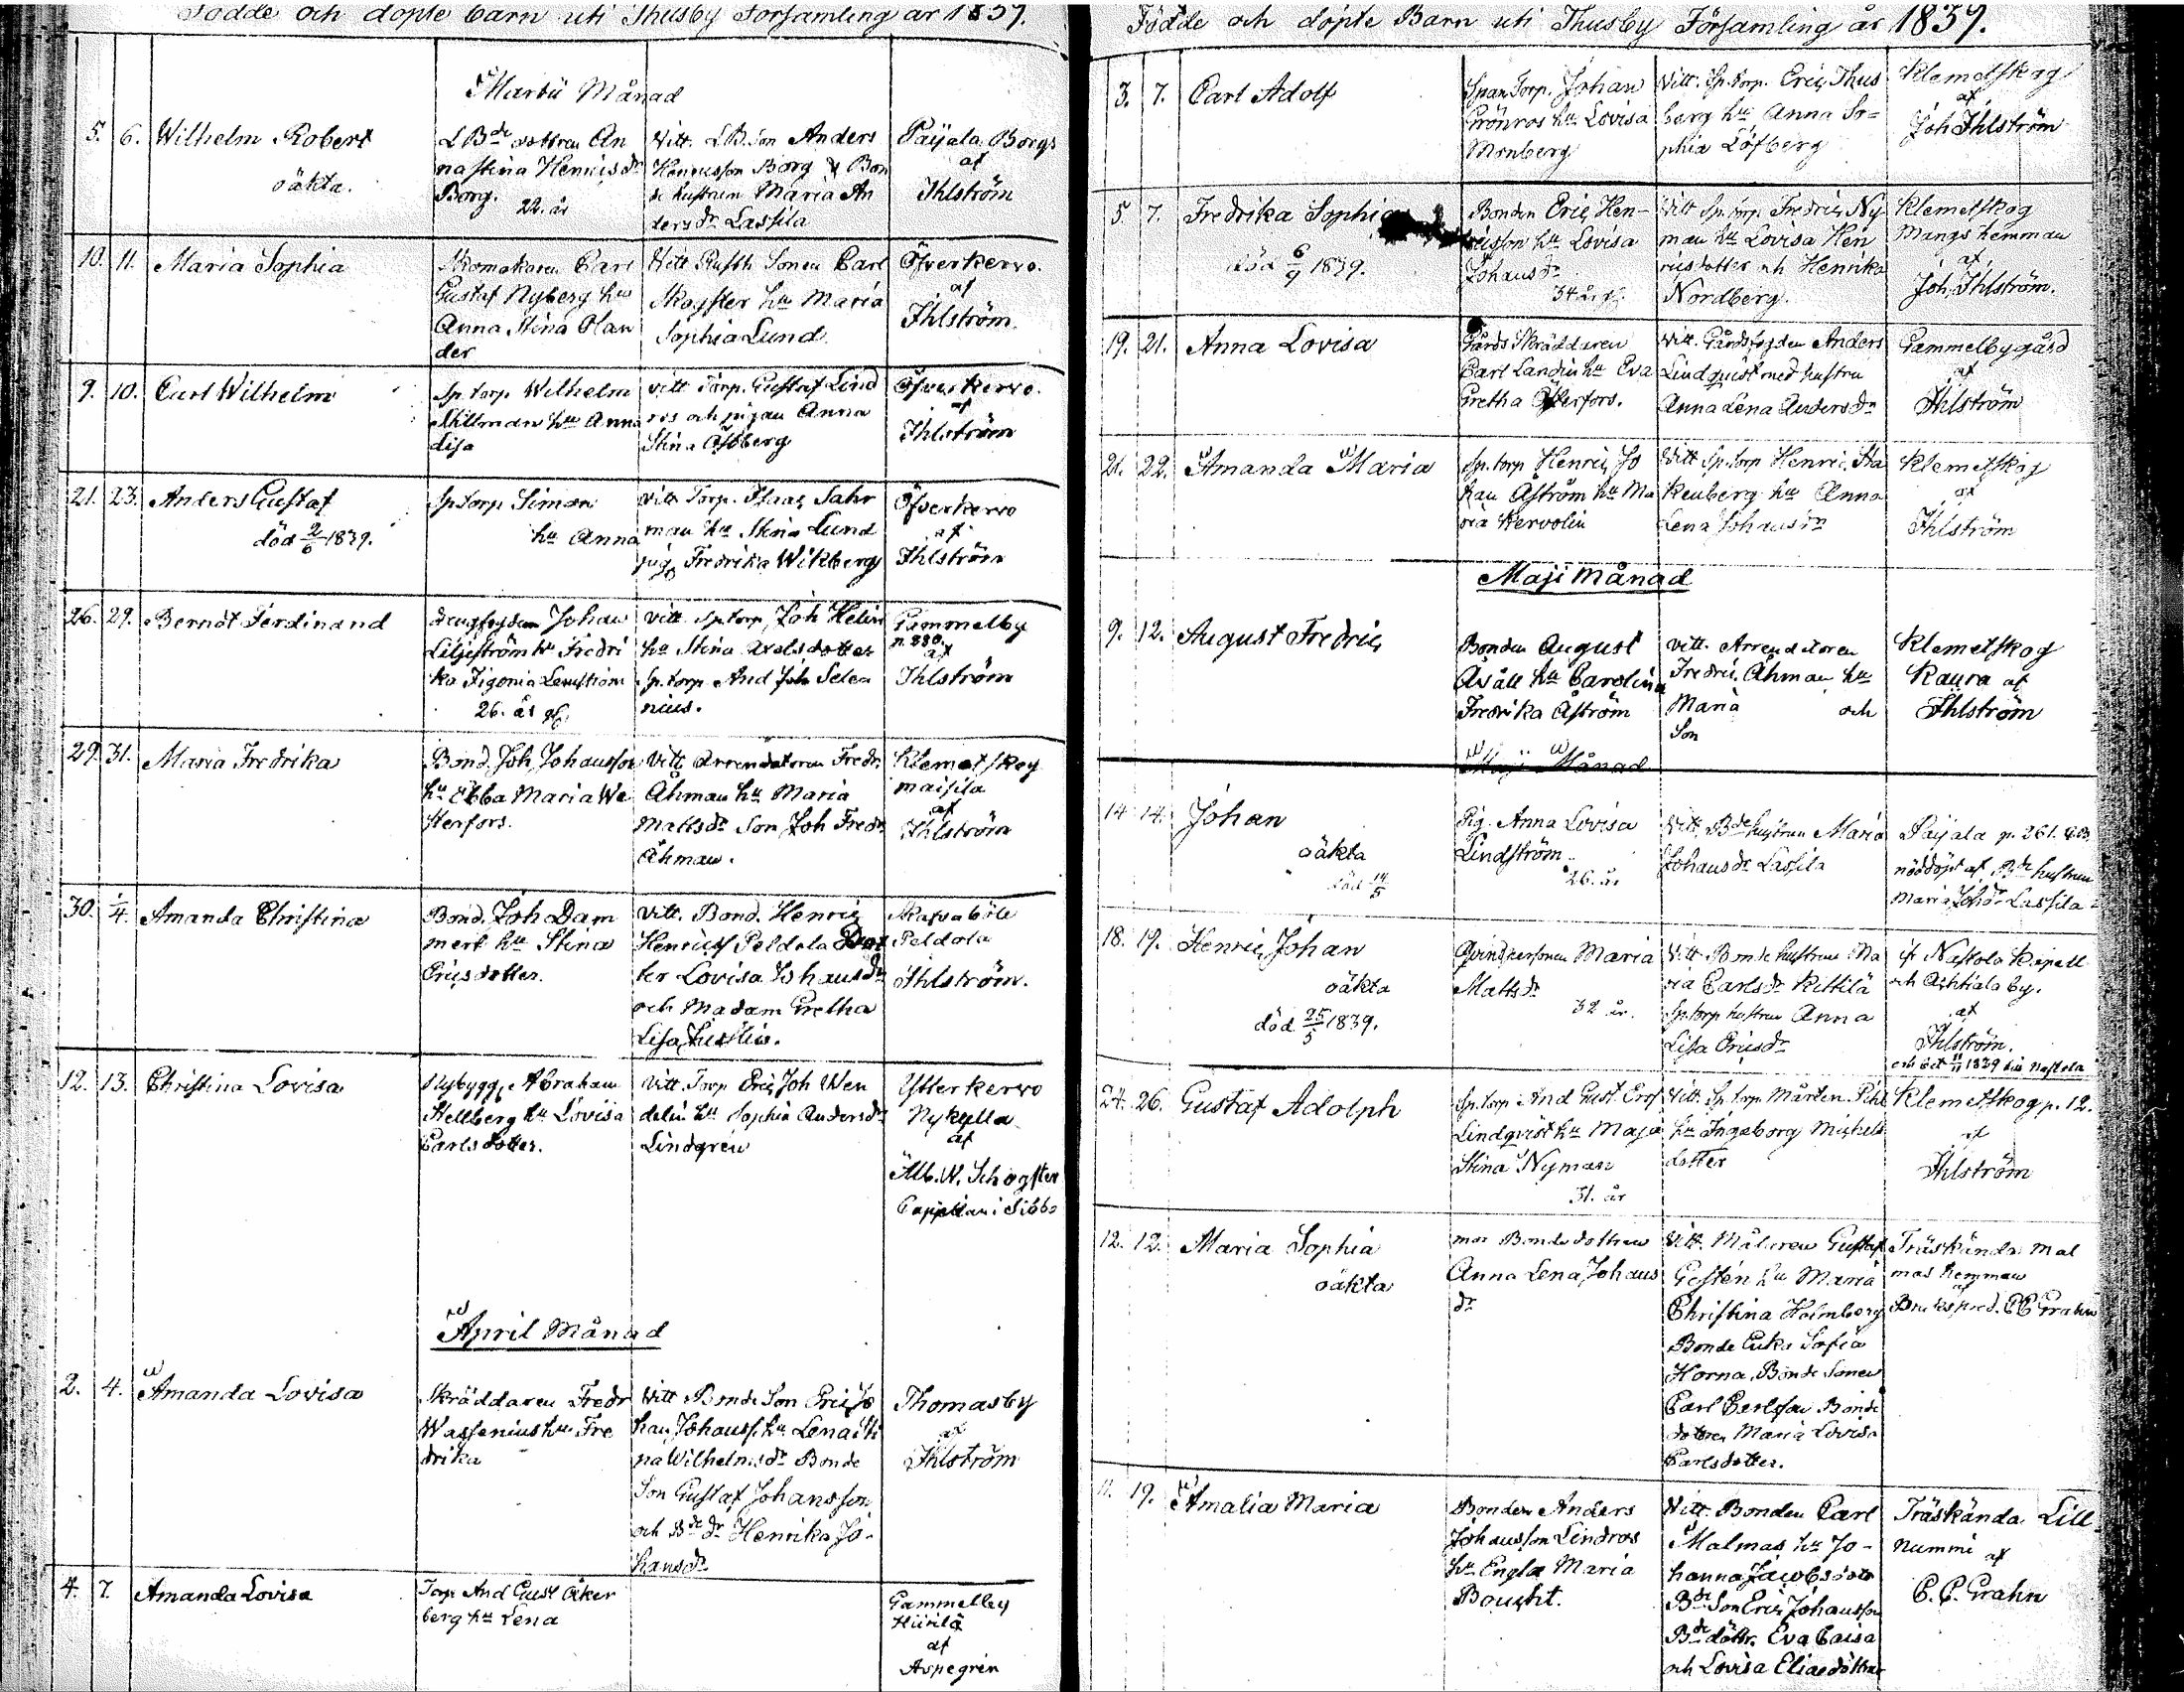 Födde och döpte barn uti Thusby Församling år 1839.
Martii Månad
5. 6. Wilhelm Robert
oäkta.
LBde dottren An
na Stina Henricsdr
Borg.
22. år
Vitt. LB. Son Anders
Henricsson Borg & Bon
de hustrun Maria An
dersdr Lassila
Paijala Borgs
af
Ihlström
10. 11. Maria Sophia
Skomakaren Carl
Gustaf Nyberg hu
Anna Stina Olan
der
Vitt Rusth Sonen Carl
Skogster hu Maria
Sophia Lund.
Öfverkervo.
af
Ihlström.
9. 10. Carl Wilhelm
Sp. torp Wilhelm
Ahllman hu Anna
Lisa
Vitt Torp. Gustaf Lind
ros och pigan Anna
Stina Åsberg
Öfverkervo.
af
Ihlström
21. 23. Anders Gustaf
död 2/6 1839.
Sp torp Simon
hu Anna
Vitt Torp. Isaac Sahr
man hu Stina Lund
pig. Fredrika Wikberg
Öfverkervo
af
Ihlström
26. 29. Berndt Ferdinand
drengfogden Johan
Liljeström hu Fredri
ka Figonia Lemström
26. år gl.
Vitt. Sp. torp, Joh Helin
hu Stina Axelsdotter
Sp. torp And Joh Sele
nius.
Gammelby
p. 280.
af
Ihlström
29. 31. Maria Fredrika
Bond. Joh Johansson
hu Ebba Maria We
sterfors.
Vitt Arrendatoren Fredr.
Åhman hu Maria
Mattsdr Son Joh Fredr
Åhman.
Klemetskog
maisila
af
Ihlström
30. 1/4. Amanda Christina
Bond. Joh Dam
mert hu Stina
Ericsdotter.
Vitt. Bond. Henric
Henricss Peldola Dot
ter Lovisa Johansdr
och Madam Gretha
Lisa
Skafvaböle
Peldola
Ihlström.
12. 13. Christina Lovisa
Nybygg. Abraham
Stellberg hu Lovisa
Carlsdotter.
Vitt. Torp Eric Joh Wen
delin hu Sophia Andersdr
Lindgren
Ytterkervo
Nykylla
af
Alb. W. Schogster
Cappellan i Sibbo
April Månad
2. 4. Amanda Lovisa
Skräddaren Fredr
Wassenius hu Fre
drika
Vitt Bonde Son Eric Jo
han Johanss. hu Lena Sti
na Wilhelmsdr Bonde
Son Gustaf Johansson
och Bde dr Henrika Jo-
hansdr
Thomasby
af
Ihlström
4. 7. Amanda Lovisa
Torp And Gust Åker
berg hu Lena
Gammelby
Hiirilä
af
Aspegrén
Födde och döpte Barn uti Thusby Församling år 1839.
3. 7. Carl Adolf
Span Torp. Johan
Grönros hu Lovisa
Monberg
Vitt. Sp. torp. Eric Thus
berg hu Anna So=
phia Löfberg
Klemetskog
af
Joh Ihlström
5. 7. Fredrika Sophia
död 6/9 1839.
Bonden Eric Hen-
ricsson hu Lovisa
Johansdr
34 år gl.
Vitt Sp. torp Fredric Ny
man hu Lovisa Hen
ricsdotter och Henrika
Nordberg.
Klemetskog
Mangs hemman
af
Joh. Ihlström.
19. 21. Anna Lovisa
Gårds Skräddaren
Carl Landin hu Eva
Gretha Österfors.
Vitt. Gårdsfogden Anders
Lindquist med hustru
Anna Lena Andersdr
Gammelby gård
af
Ihlström
21. 22. Amanda Maria
Sp. torp Henric Jo
han Åström hu Ma
ria Kervolin
Vitt Sp. torp Henric Sta
kenberg hu Anna
Lena Johansdr
Klemetskog
af
Ihlström
Maji Månad
9. 12. August Fredric
Bonden August
Avall hu Carolina
Fredrika Åström
Vitt. Arrendatoren
Fredric Åhman hu
Maria och
Son
Klemetskog
Kaura af
Ihlström
Maji Månad
14. 14. Johan
oäkta
död 14/5
Pig. Anna Lovisa
Lindström.
26. år
Vitt. Bde hustrun Maria
Johansdr Lassila
Paijala p. 261.
nöddöpt af Bde hustrun
Maria Johdr Lassila
18. 19. Henric Johan
oäkta
död 25/5 1839.
Qvinspersonen Maria
Mattsdr
32 år.
Vitt Bonde hustrun Ma
ria Carlsdr Kettilä
Sp. torp hustrun Anna
Lisa Ericsdr
if Nastola Kapell
och Ahtiala by.
af
Ihlström.
1839 Nastola
24. 26. Gustaf Adolph
Sp. torp And Gust. Eros
Lindqvist hu Maja
Stina Nyman
31. år
Vitt. Sp. torp. Mårten Pihl
hu Ingeborg Michels
dotter
Klemetskog p. 12.
af
Ihlström
12. 12. Maria Sophia
oäkta
mor Bonde dottren
Anna Lena Johans
dr
Vitt. Målaren Gustaf
Gestén hu Maria
Christina Holmberg
Bonde Enka Sofia
Horna, Bonde Sonen
Carl Carlsson Bonde
dotren Maria Lovisa
Carlsdotter.
Träskända Mal
mas hemman
af
Brukspred. C C Grahn
11. 19. Amalia Maria
Bonden Anders
Johansson Lindros
hu Engla Maria
Boucht.
Vitt. Bonden Carl
Malmas hu Jo-
hanna Jacobsdotr
Bde Son Eric Johansson
Bde döttr. Eva Caisa
och Lovisa Eliaedöttrar
Träskända Lill
nummi
af
C. C. Grahn